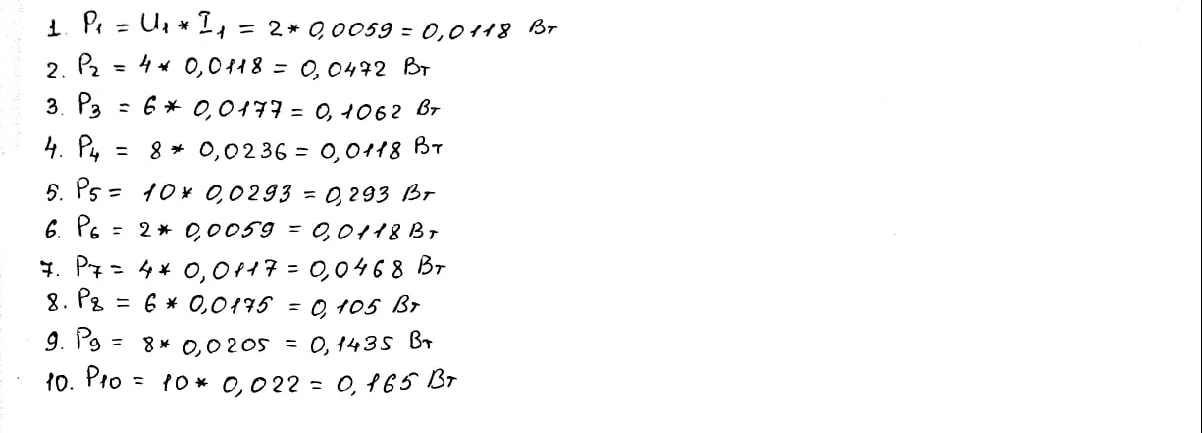 1. P₁ = U₁ * I₁ = 2 * 0,0059 = 0,0118 Вт
2. P₂ = 4 * 0,0118 = 0,0472 Вт
3. P₃ = 6 * 0,0177 = 0,1062 Вт
4. P₄ = 8 * 0,0236 = 0,0118 Вт
5. P₅ = 10 * 0,0293 = 0,293 Вт
6. P₆ = 2 * 0,0059 = 0,0118 Вт
7. P₇ = 4 * 0,0117 = 0,0468 Вт
8. P₈ = 6 * 0,0175 = 0,105 Вт
9. P₉ = 8 * 0,0205 = 0,1435 Вт
10. P₁₀ = 10 * 0,022 = 0,165 Вт